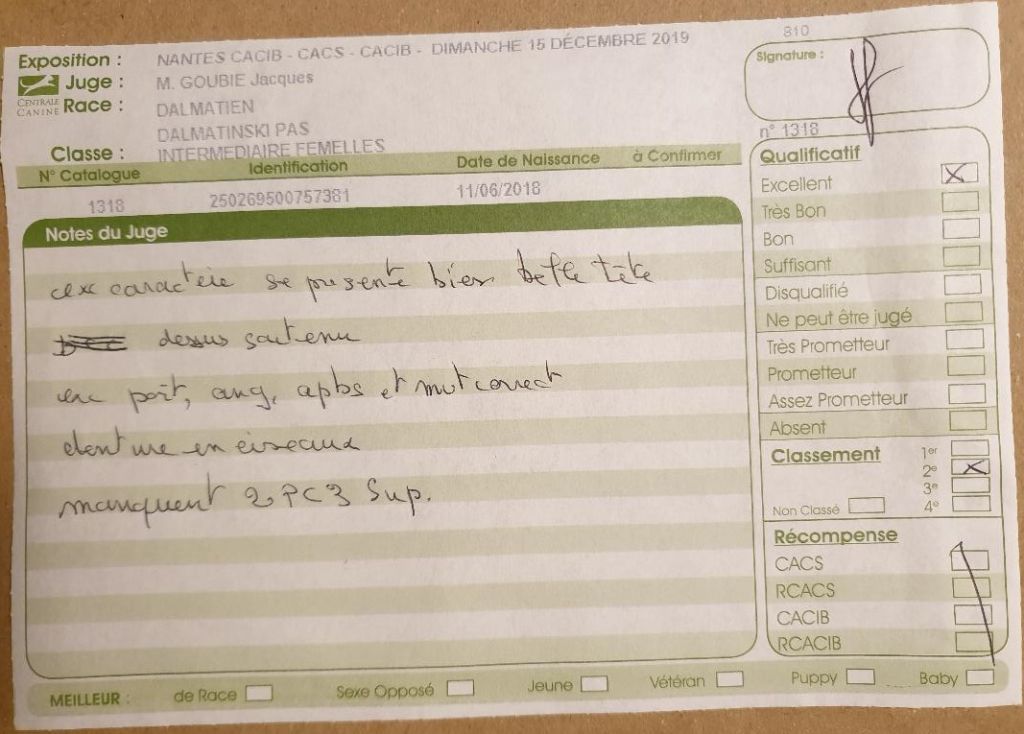 810
Exposition : NANTES CACIB - CACS - CACIB - DIMANCHE 15 DÉCEMBRE 2019
Signature :
Juge : M. GOUBIE Jacques
CENTRALE CANINE
Race : DALMATIEN
DALMATINSKI PAS
Classe : INTERMEDIAIRE FEMELLES
n° 1318
N° Catalogue Identification Date de Naissance à Confirmer
1318 250269500757381 11/06/2018
Notes du Juge
caractère se presente bien belle tête
dessus soutenu
port, ang, apbs et mvt correct
denture en ciseaux
manquent 2 PC3 Sup.
Qualificatif
Excellent
Très Bon
Bon
Suffisant
Disqualifié
Ne peut être jugé
Très Prometteur
Prometteur
Assez Prometteur
Absent
Classement
1er
2e
3e
4e
Non Classé
Récompense
CACS
RCACS
CACIB
RCACIB
MEILLEUR : de Race Sexe Opposé Jeune Vétéran Puppy Baby